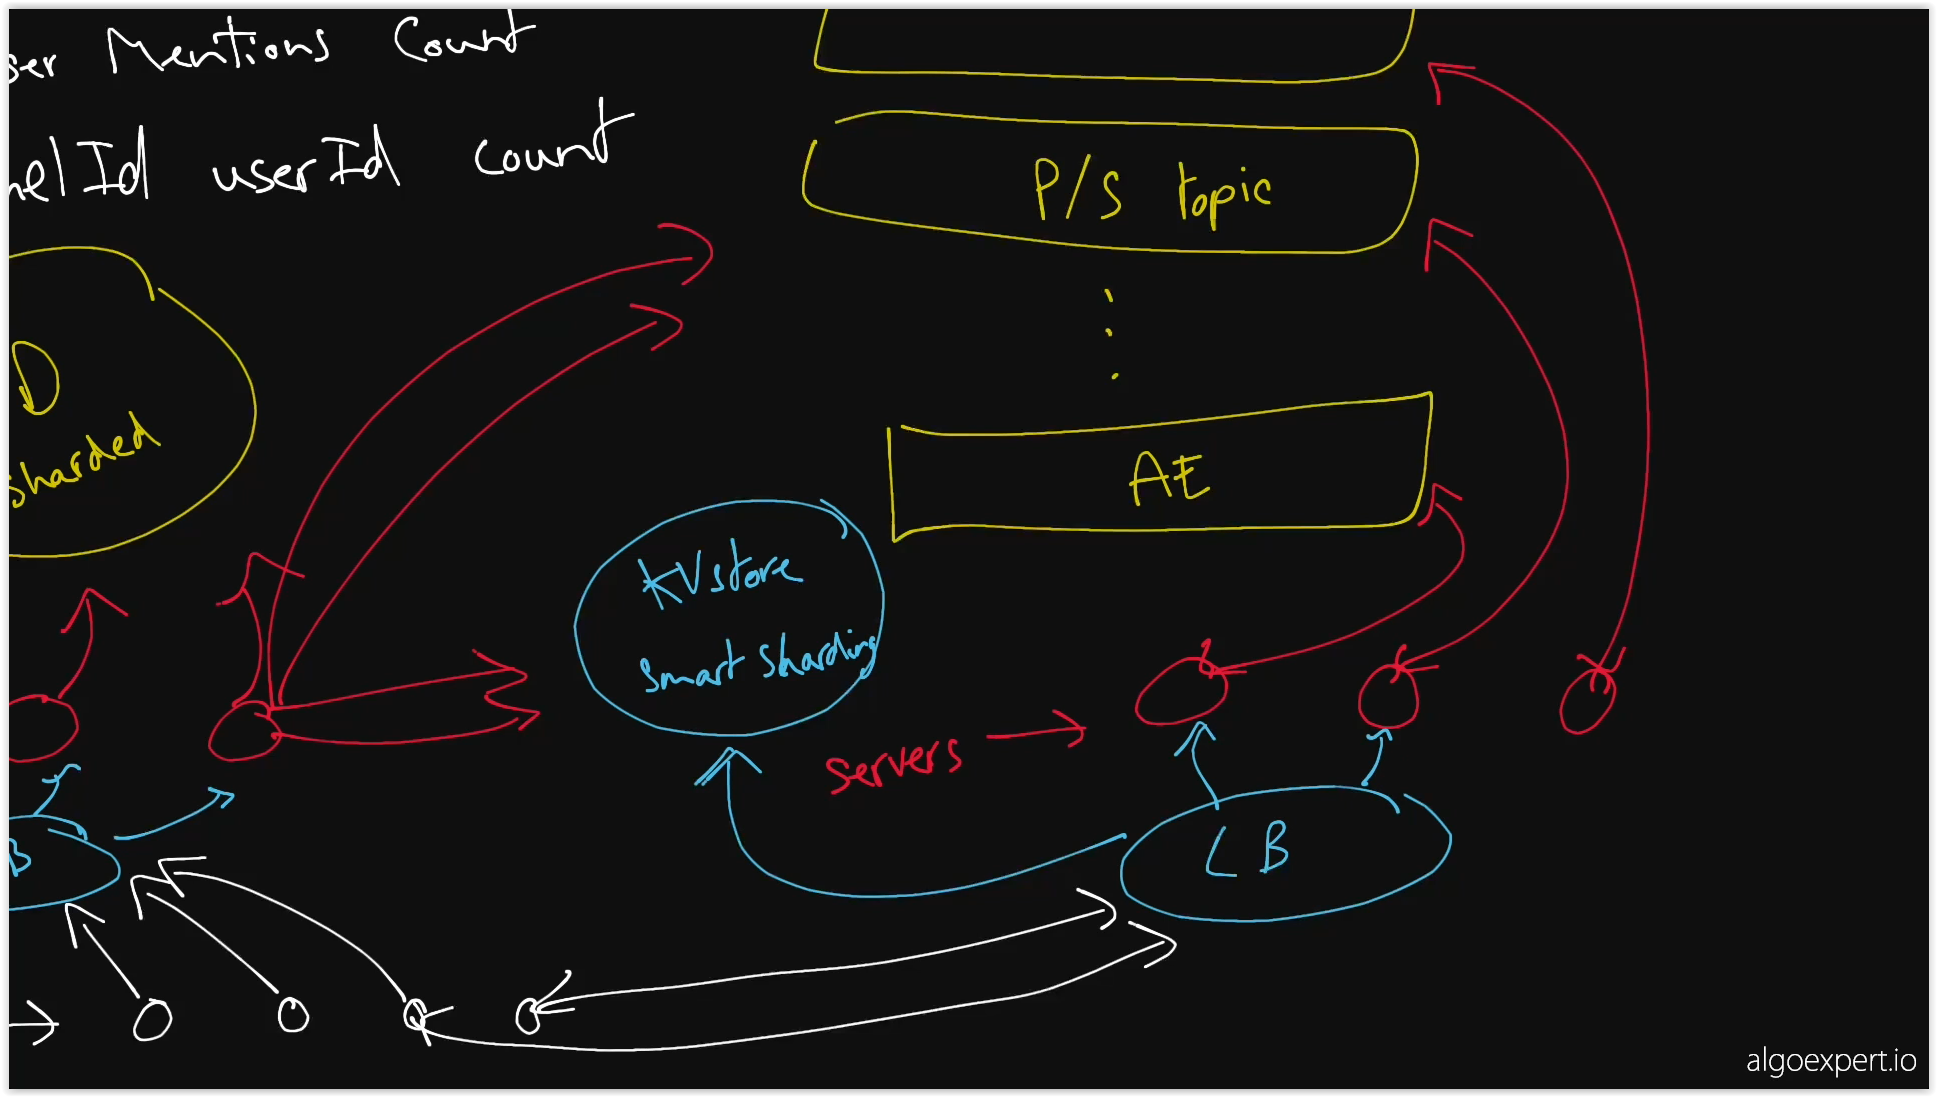 ser Mentions Count
nelId userId count
P/S topic
D
sharded
AE
KV store
Smart Sharding
Servers
B
LB
algoexpert.io